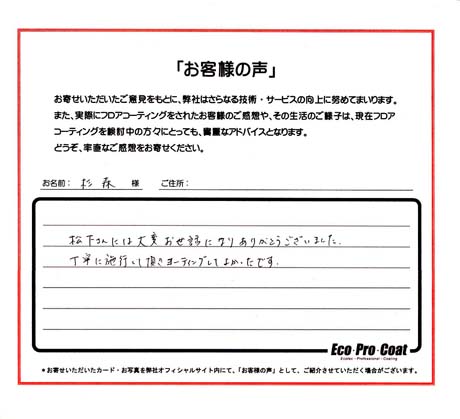 「お客様の声」
お寄せいただいたご意見をもとに、弊社はさらなる技術・サービスの向上に努めてまいります。
また、実際にフロアコーティングをされたお客様のご感想や、その生活のご様子は、現在フロア
コーティングを検討中の方々にとっても、貴重なアドバイスとなります。
どうぞ、率直なご感想をお寄せください。
お名前： 杉森 様 ご住所：
松下さんには大変お世話になりありがとうございました。
丁寧に施行して頂きコーティングしてよかったです。
Eco·Pro·Coat
Ecolon・Professional・Coating
＊お寄せいただいたカード・お写真を弊社オフィシャルサイト内にて、「お客様の声」として、ご紹介させていただく場合がございます。